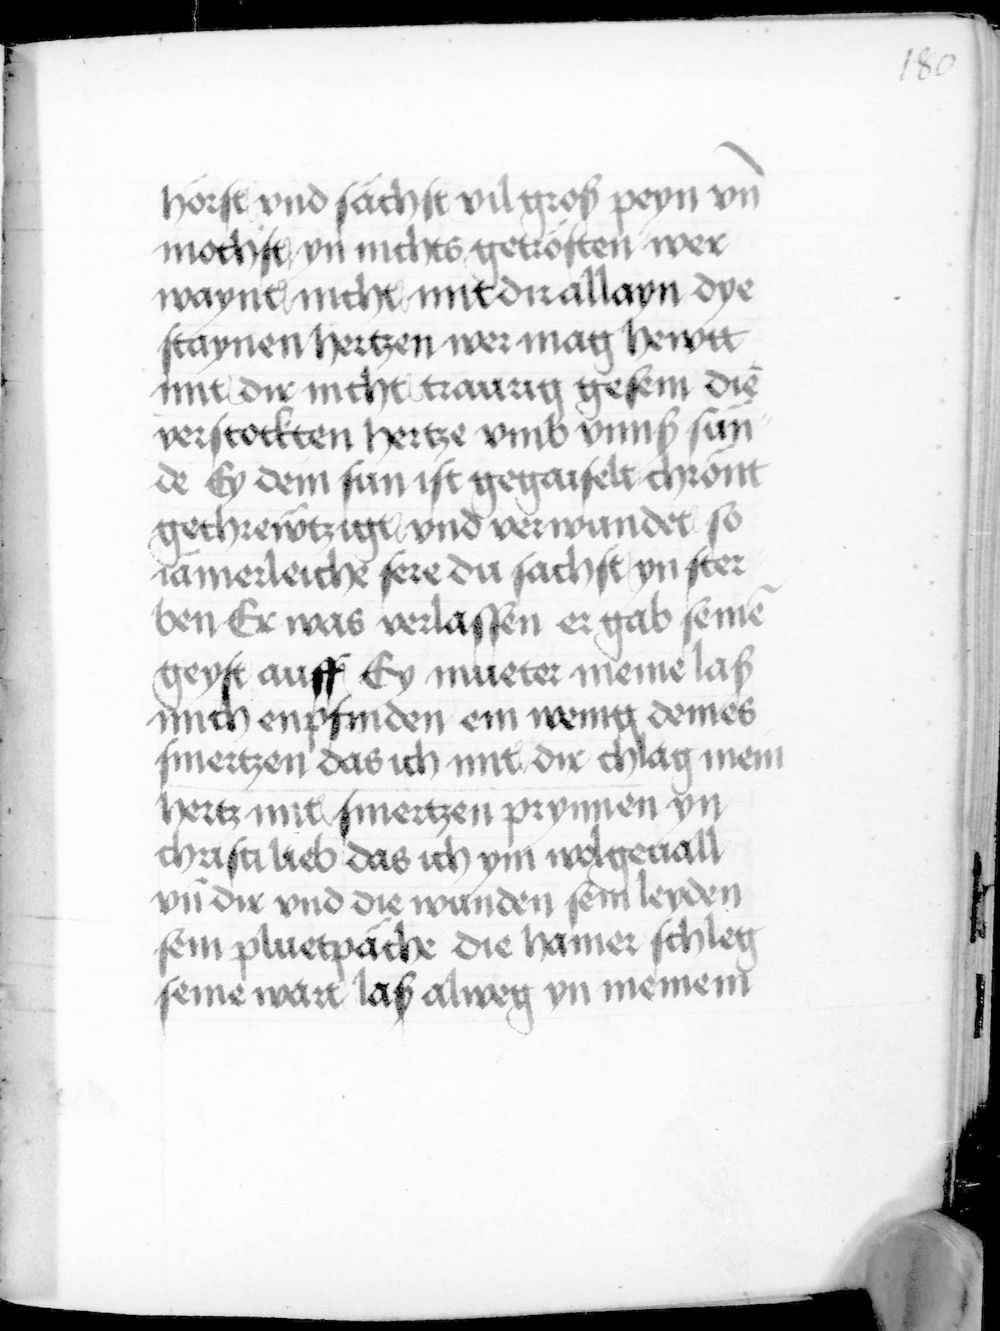 180
hörst vnd sächst vil groß peyn vn̄
mochst yn nichts getrösten wer
waynt nicht mit dir allayn dye
staynen hertzen wer mag hewtt
mit dir nicht traurig gesein die
verstockten hertze vmb vnnß sün
de Ey dein sun ist gegaiselt chrönt
gechrewtzigt vnd verwundet so
iämerleiche sere du sachst yn ster
ben Er was verlassen er gab seinē
geyst auff Ey mueter meine laß
mich enpfinden ein wenig deines
smertzen das ich mit dir chlag mein
hertz mit smertzen prynnen yn
christi lieb das ich ym wolgeuall
vn̄ dir vnd die wunden sein leyden
sein pluetpäche die hamer schleg
seine wart laß alweg yn meinem